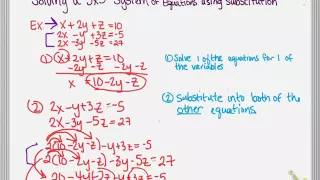 Solving a 3x3 System of Equations using Substitution
Ex x+2y+z=10
2x-y+3z=-5
2x-3y-5z=27
① x+2y+z=10
-2y-z -2y-z
x = 10-2y-z
② 2x-y+3z=-5
2x-3y-5z=27
2(10-2y-z)-y+3z=-5
2(10-2y-z)-3y-5z=27
20-4y-2z-y+3z=-5
① Solve 1 of the equations for 1 of
the variables
② Substitute into both of the
other equations.